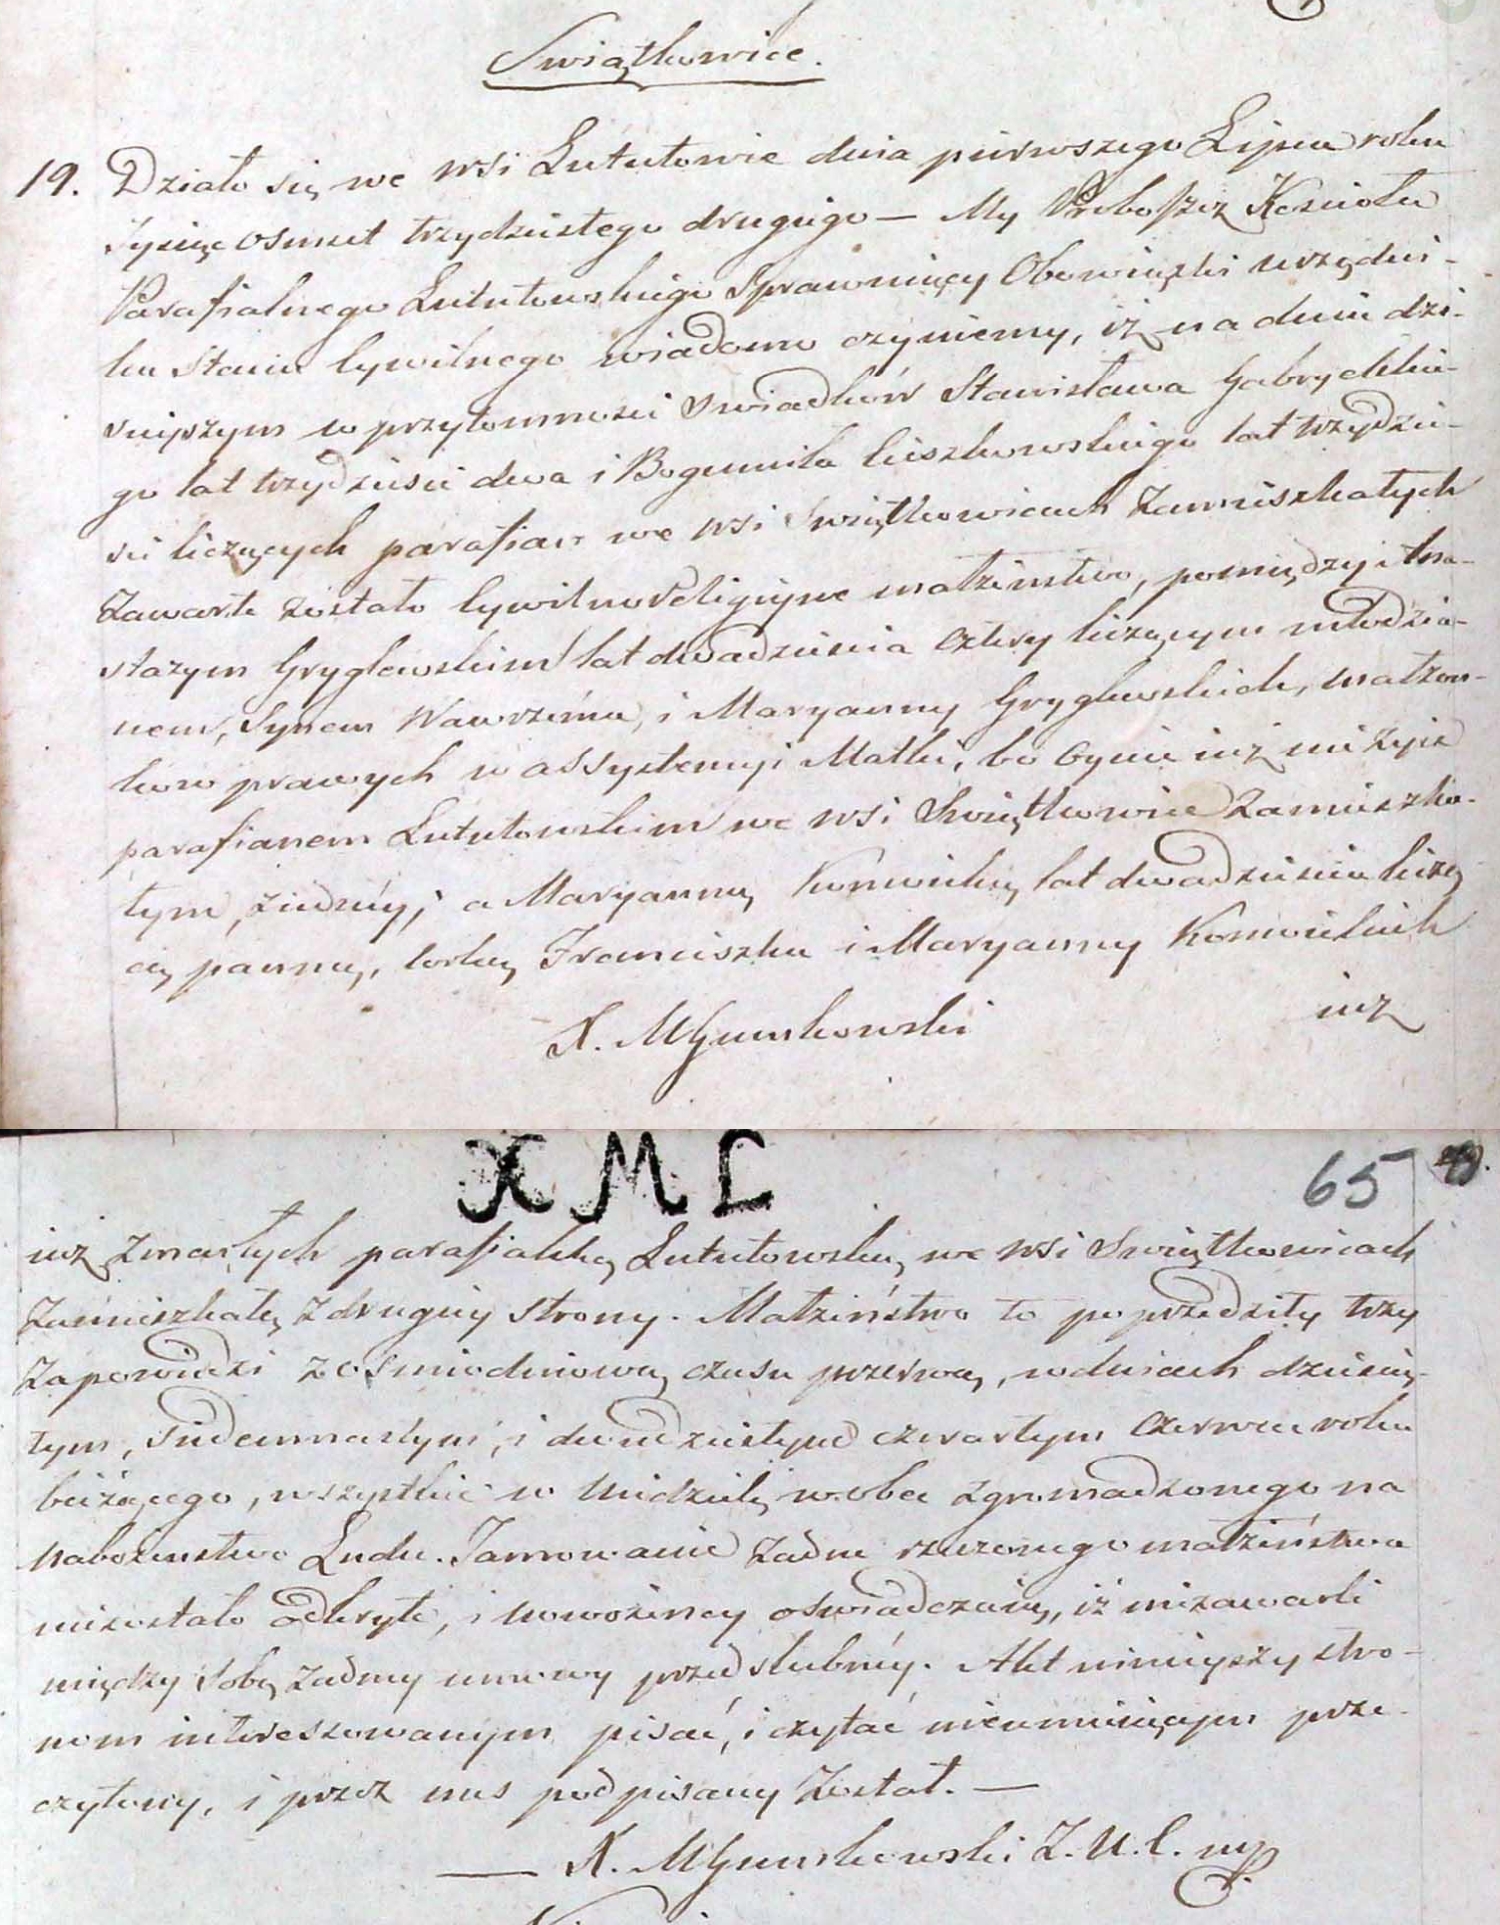 Swiątkowice.
19. Działo się we wsi Lututowie dnia pierwszego Lipca roku
tysiąc osmset trzydziestego drugiego — My Proboszcz Kościoła
Parafialnego Lututowskiego Sprawuiący Obowiązki urzędni-
ka Stanu Cywilnego wiadomo czyniemy, iż na dniu dzi-
sieyszym w przytomnosci swiadków Stanisława Gabryelskie-
go lat trzydziesci dwa i Bogumiła Cieszkowskiego lat trzydzie-
sci liczących parafian we wsi Swiątkowicach Zamieszkałych
Zawarte zostało Cywilno Religiyne małzenstwo, pomiędzy Ana-
stazym Gryglewskim lat dwadziescia cztery liczącym młodzia-
nem, Synem Wawrzeńca, i Maryanny Gryglewskich, małzon-
kow prawych w assystencyi Matki, bo Oyciec iuż nie żyie
parafianem Lututowskim we wsi Swiątkowice Zamieszka-
łym, ziedney, a Maryanną Konwicką lat dwadziescia liczą
cą panną, Corką Franciszka i Maryanny Konwickich
iuż
X. MGumkowski
X M L
65
iuż zmarłych parafianką Lututowską we wsi Swiątkowicach
Zamieszkałą z drugiey strony. Małzeństwo to poprzedziły trzy
Zapowiedzi z osmiodniową czasu przerwą, w dniach dziesią-
tym, siedemnastym, i dwudziestym czwartym Czerwca roku
bieżącego, wszystkie w Niedzielę wobec zgromadzonego na
Nabozenstwo Ludu. Tamowanie żadne rzeczonego małzeństwa
niezostało odkryte, i nowozency oswiadczaią, iż niezawarli
między sobą żadney umowy przedslubney. Akt ninieyszy stro-
nom interessowanym pisać, i czytać nieumieiącym prze-
czytany, i przez nas podpisany Został. —
— X. MGumkowski Z. U. C. mp